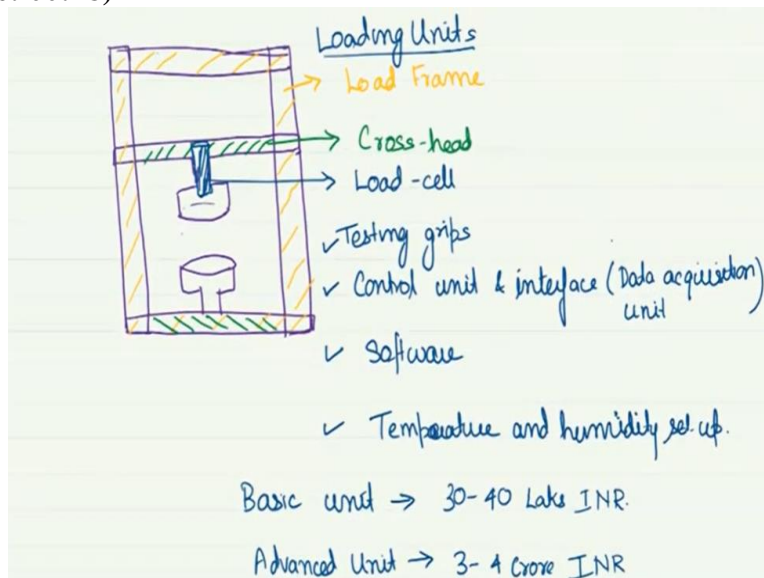 Loading Units
Load Frame
Cross-head
Load-cell
✓ Testing grips
✓ Control unit & interface (Data acquisition)
unit
✓ Software
✓ Temperature and humidity set-up.
Basic unit → 30-40 Laks INR.
Advanced Unit → 3-4 Crore INR